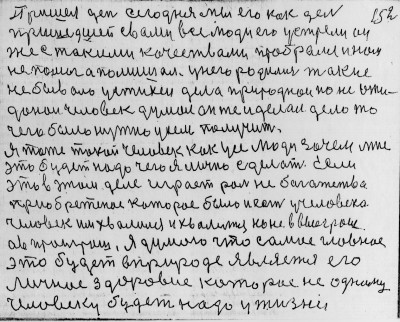 Пришел ден сегодня мы его как ден 152
пришедший своми все люди его устрели он
же с такими качествами пробрался и нам
не помога помишал. У него родилис такие
не бывало успехи дела природной по не
доной человек думал он те и делал дело то
чего было нужно усем получит.
Я тоже такой человек как усе люди зачем мне
это будет надо чего я лично сделат. Если
эта в этом деле играет рол не богатства
приобретеное которое было и ест у человека
человек им хвалился и хвалится но не в выиграш
а в проиграш, я думаю что самое главное
это будет в природе является его
личное здоровие которое не одному
человеку будет надо у жизни